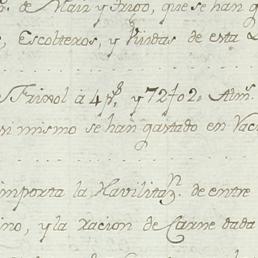 de Maiz y Trigo, que se han g
Escolteros, y Viudas de esta
Frixol á 4 p.s, y 72 f 02. Alm.s
si mismo se han gastado en Vac
importa la Havilitaz.n de entre
ino, y la racion de Carne dada